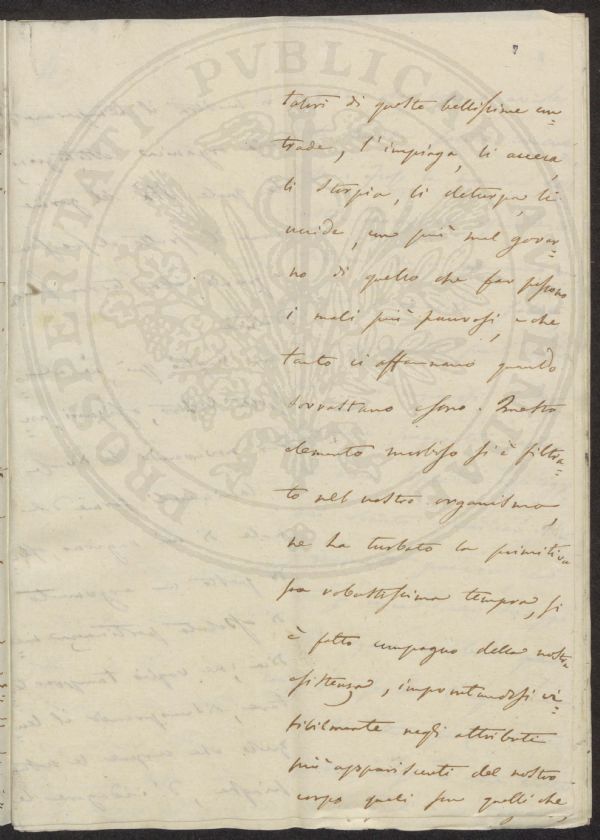 7
tatori di queste bellissime con=
trade, l'impiaga, li accera,
li storpia, li deturpa, li
uccide, con più mal gover=
no di quello che far possono
i mali più paurosi, e che
tanto ci affannano quando
sovrastano o sono. Questo
elemento morboso si è filtra=
to nel nostro organismo,
ne ha turbato la primitiva
sua robustissima tempra, si
è fatto compagno della nostra
esistenza, improntandosi vi=
sibilmente negli attributi
più appariscenti del nostro
corpo quali son quelli che,
PROSPERITATI PVBLICAE AVGENDAE